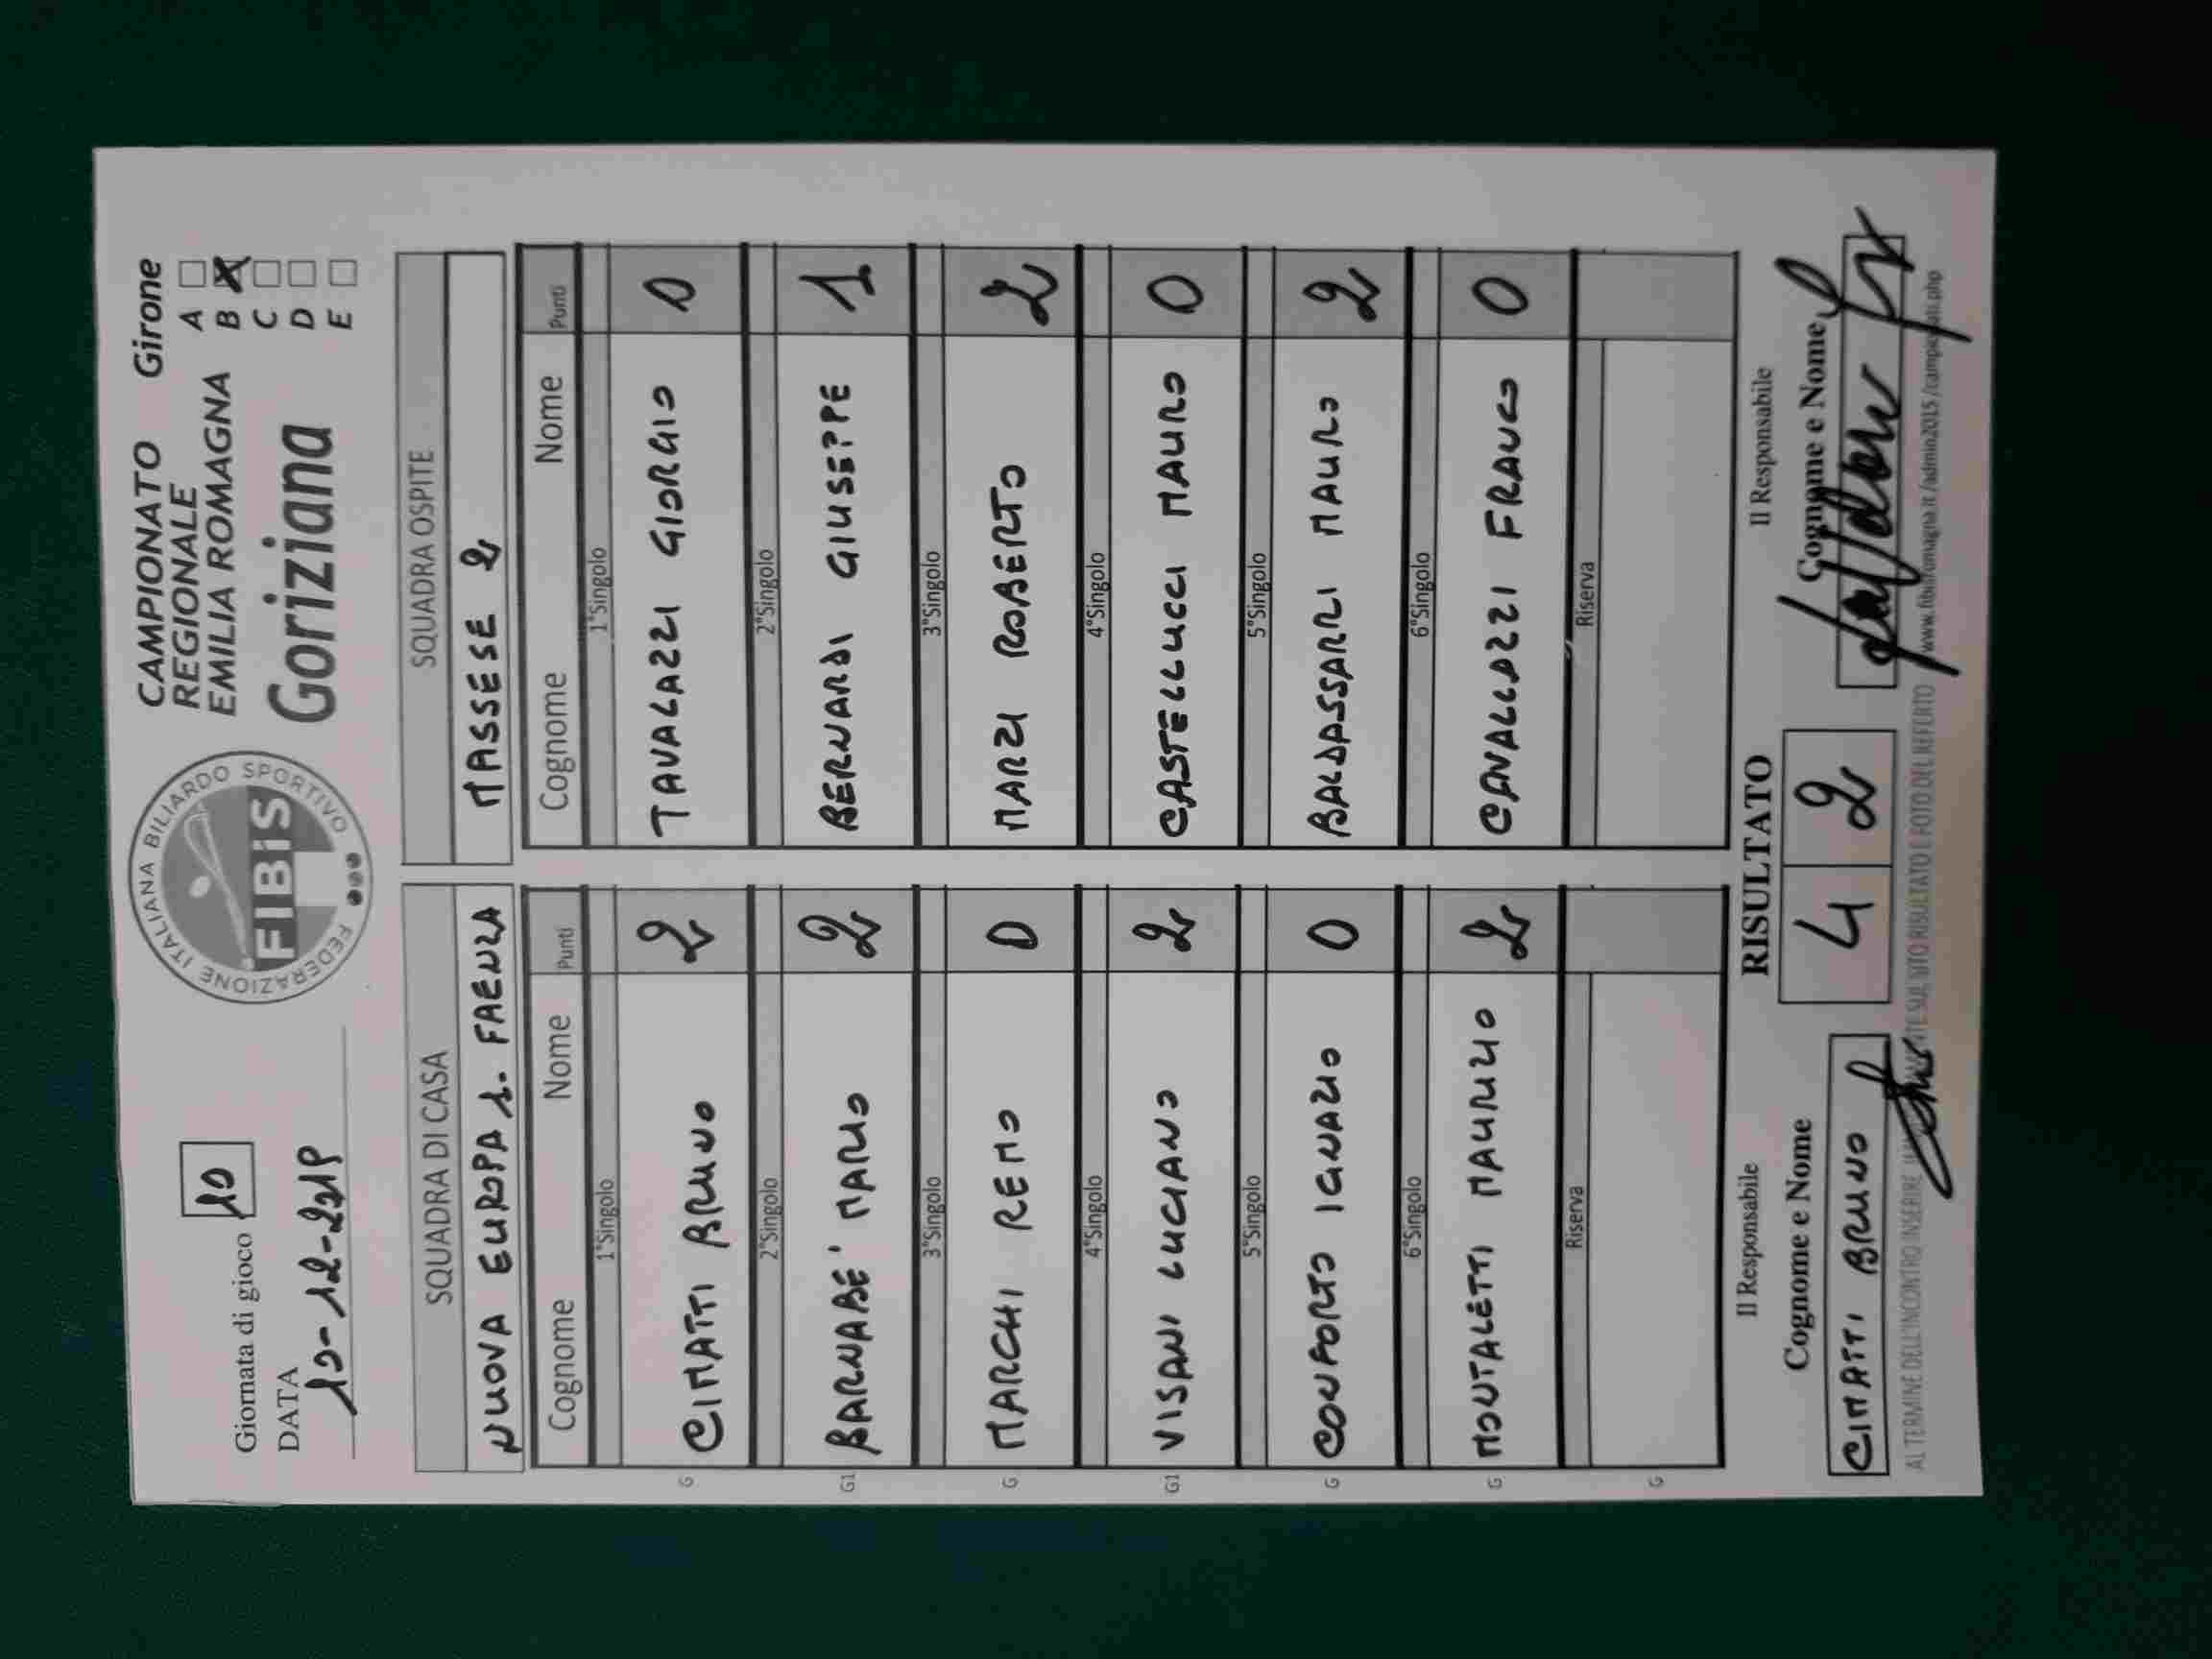 Giornata di gioco 10
DATA
10-12-2018
FEDERAZIONE ITALIANA BILIARDO SPORTIVO
FIBiS
CAMPIONATO
REGIONALE
EMILIA ROMAGNA
Goriziana
Girone
A
B X
C
D
E
SQUADRA DI CASA SQUADRA OSPITE
NUOVA EUROPA 1. FAENZA MASSESE 2
Cognome Nome Punti Cognome Nome Punti
1°Singolo 1°Singolo
G CIMATTI BRUNO 2 TAVALAZZI GIORGIO 0
2°Singolo 2°Singolo
G1 BARNABE' MARIO 2 BERNARDI GIUSEPPE 1
3°Singolo 3°Singolo
G MARCHI REMO 0 MARZI ROBERTO 2
4°Singolo 4°Singolo
G1 VISANI LUCIANO 2 CASTELLUCCI MAURO 0
5°Singolo 5°Singolo
G CONFORTO IGNAZIO 0 BALDASSARRI MAURO 2
6°Singolo 6°Singolo
G MONTALETTI MAURIZIO 2 CAVALLAZZI FRANCO 0
Riserva Riserva
G
Il Responsabile RISULTATO Il Responsabile
Cognome e Nome 4 2 Cognome e Nome
CIMATTI BRUNO
AL TERMINE DELL'INCONTRO INSERIRE SUL SITO RISULTATO E FOTO DEL REFERTO